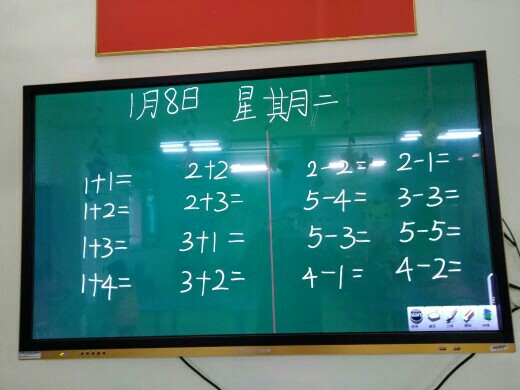 1月8日 星期二
1+1= 2+2= 2-2= 2-1=
1+2= 2+3= 5-4= 3-3=
1+3= 3+1= 5-3= 5-5=
1+4= 3+2= 4-1= 4-2=